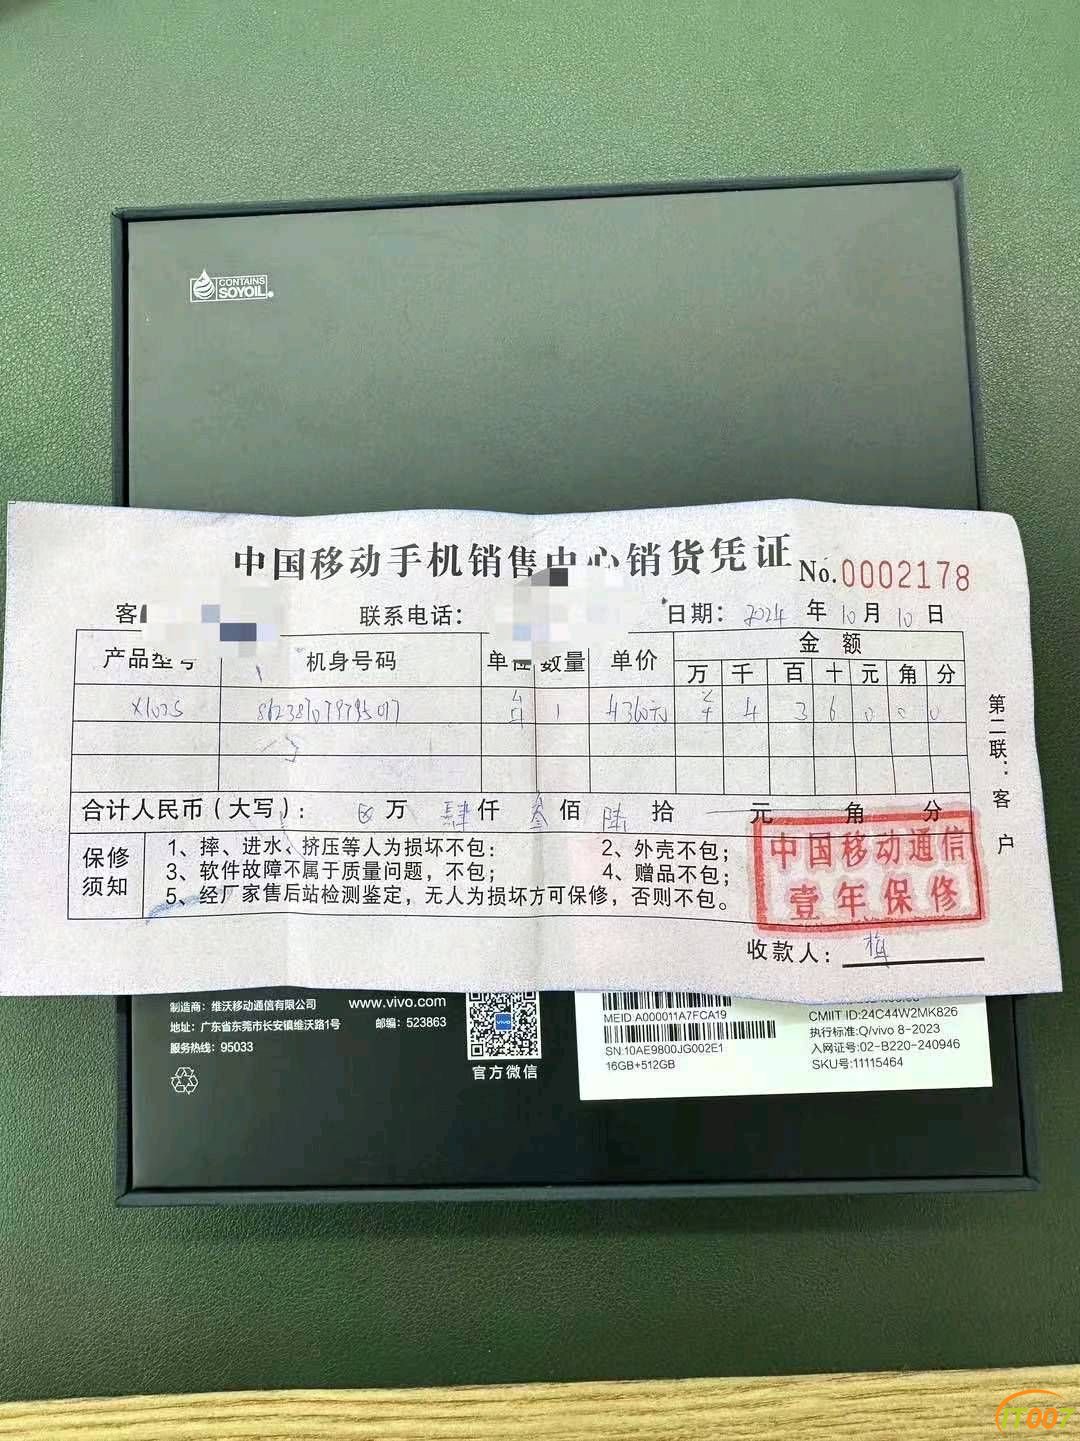 CONTAINS
SOYOIL
中国移动手机销售中心销货凭证 No.0002178
客 联系电话： 日期：2024 年 10 月 10 日
产品型号 机身号码 单位 数量 单价 金额
万 千 百 十 元 角 分
X100S 1 4360元 4 3 6 0 0 0
合计人民币（大写）： 万 肆仟 叁佰 陆拾 元 角 分
保修须知
1、摔、进水、挤压等人为损坏不包： 2、外壳不包；
3、软件故障不属于质量问题，不包； 4、赠品不包；
5、经厂家售后站检测鉴定，无人为损坏方可保修，否则不包。
中国移动通信
壹年保修
收款人： 梅
第二联：客户
制造商：维沃移动通信有限公司 www.vivo.com
地址：广东省东莞市长安镇维沃路1号 邮编：523863
服务热线：95033
vivo
官方微信
MEID:A000011A7FCA19
SN:10AE9800JG002E1
16GB+512GB
CMIIT ID:24C44W2MK826
执行标准:Q/vivo 8-2023
入网证号:02-B220-240946
SKU号:11115464
IT007